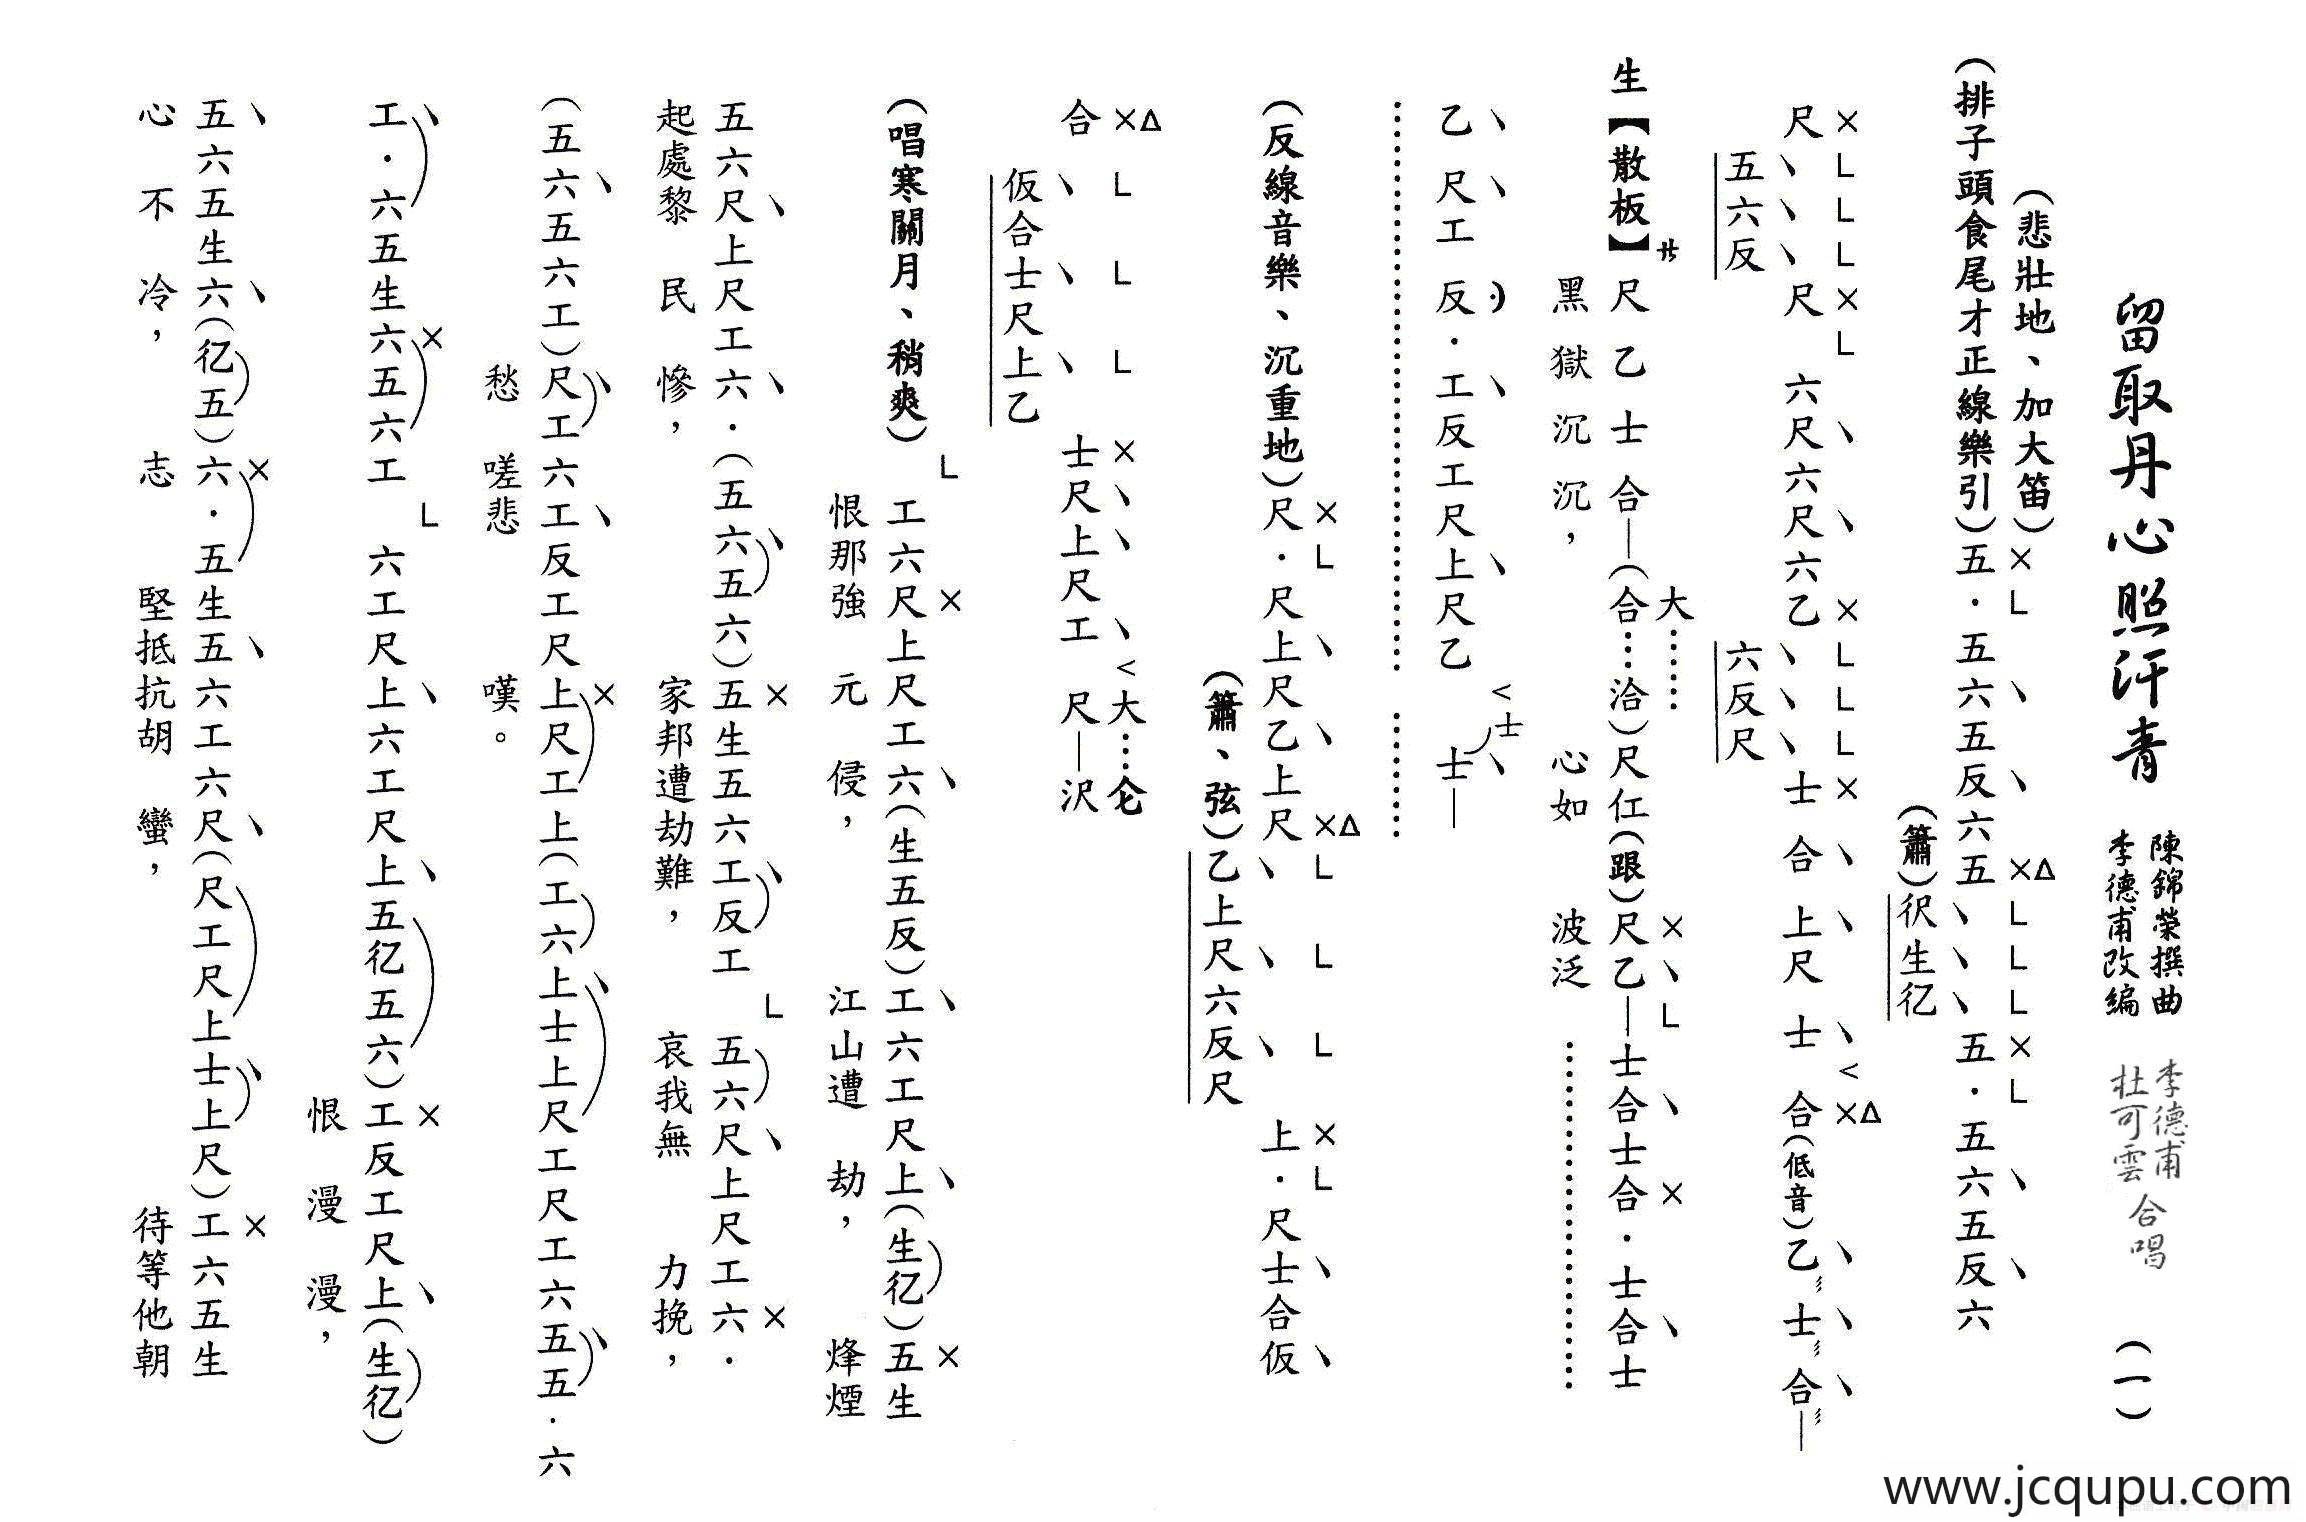 留取丹心照汗青 陳錦榮撰曲 李德甫改編 李德甫 杜可雲 合唱 (一)
(悲壯地、加大笛) × L ×△ L L L × L
(排子頭食尾才正線樂引)五·五六五反六五 五·五六五反六
(簫)伬生亿
× L L L × L × L L L × ×△
尺 尺六尺六尺六乙 士合上尺士合(低音)乙士合—
五六反 六反尺
大……
生【散板】尺乙士合—(合…洽)尺仜(跟)尺乙—士合士合·士合士
黑獄沉沉, 心如波泛
乙尺工反·工反工尺上尺乙 士 士—
(反線音樂、沉重地)尺·尺上尺乙上尺 上·尺士合仮
(簫、弦)乙上尺六反尺
×△ L L L × < 大…仑
合 士尺上尺工 尺—沢
仮合士尺上乙
(唱寒關月、稍爽) 工六尺上尺工六(生五反)工六工尺上(生亿)五生
恨那強元侵,江山遭劫,烽煙
五六尺上尺工六·(五六五六)五生五六工反工 五六尺上尺工六·
起處黎民慘,家邦遭劫難,哀我無力挽,
(五六五六工)尺工六工反工尺上尺工上(工六上士上尺工尺工六五五·六
愁嗟悲嘆。
工·六五生六五六工 六工尺上六工尺上五亿五六)工反工尺上(生亿)
恨漫漫,
五六五生六(亿五)六·五生五六工六尺(尺工尺上士上尺)工六五生
心不冷,志堅抵抗胡蠻,待等他朝
www.jcqupu.com